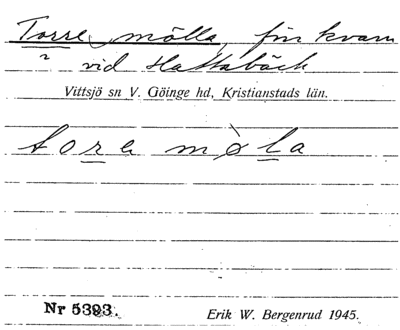 Torre mölla, för kvarn
vid Hattabäck
Vittsjö sn V. Göinge hd, Kristianstads län.
tora mø̀la
Nr 5393.
Erik W. Bergenrud 1945.